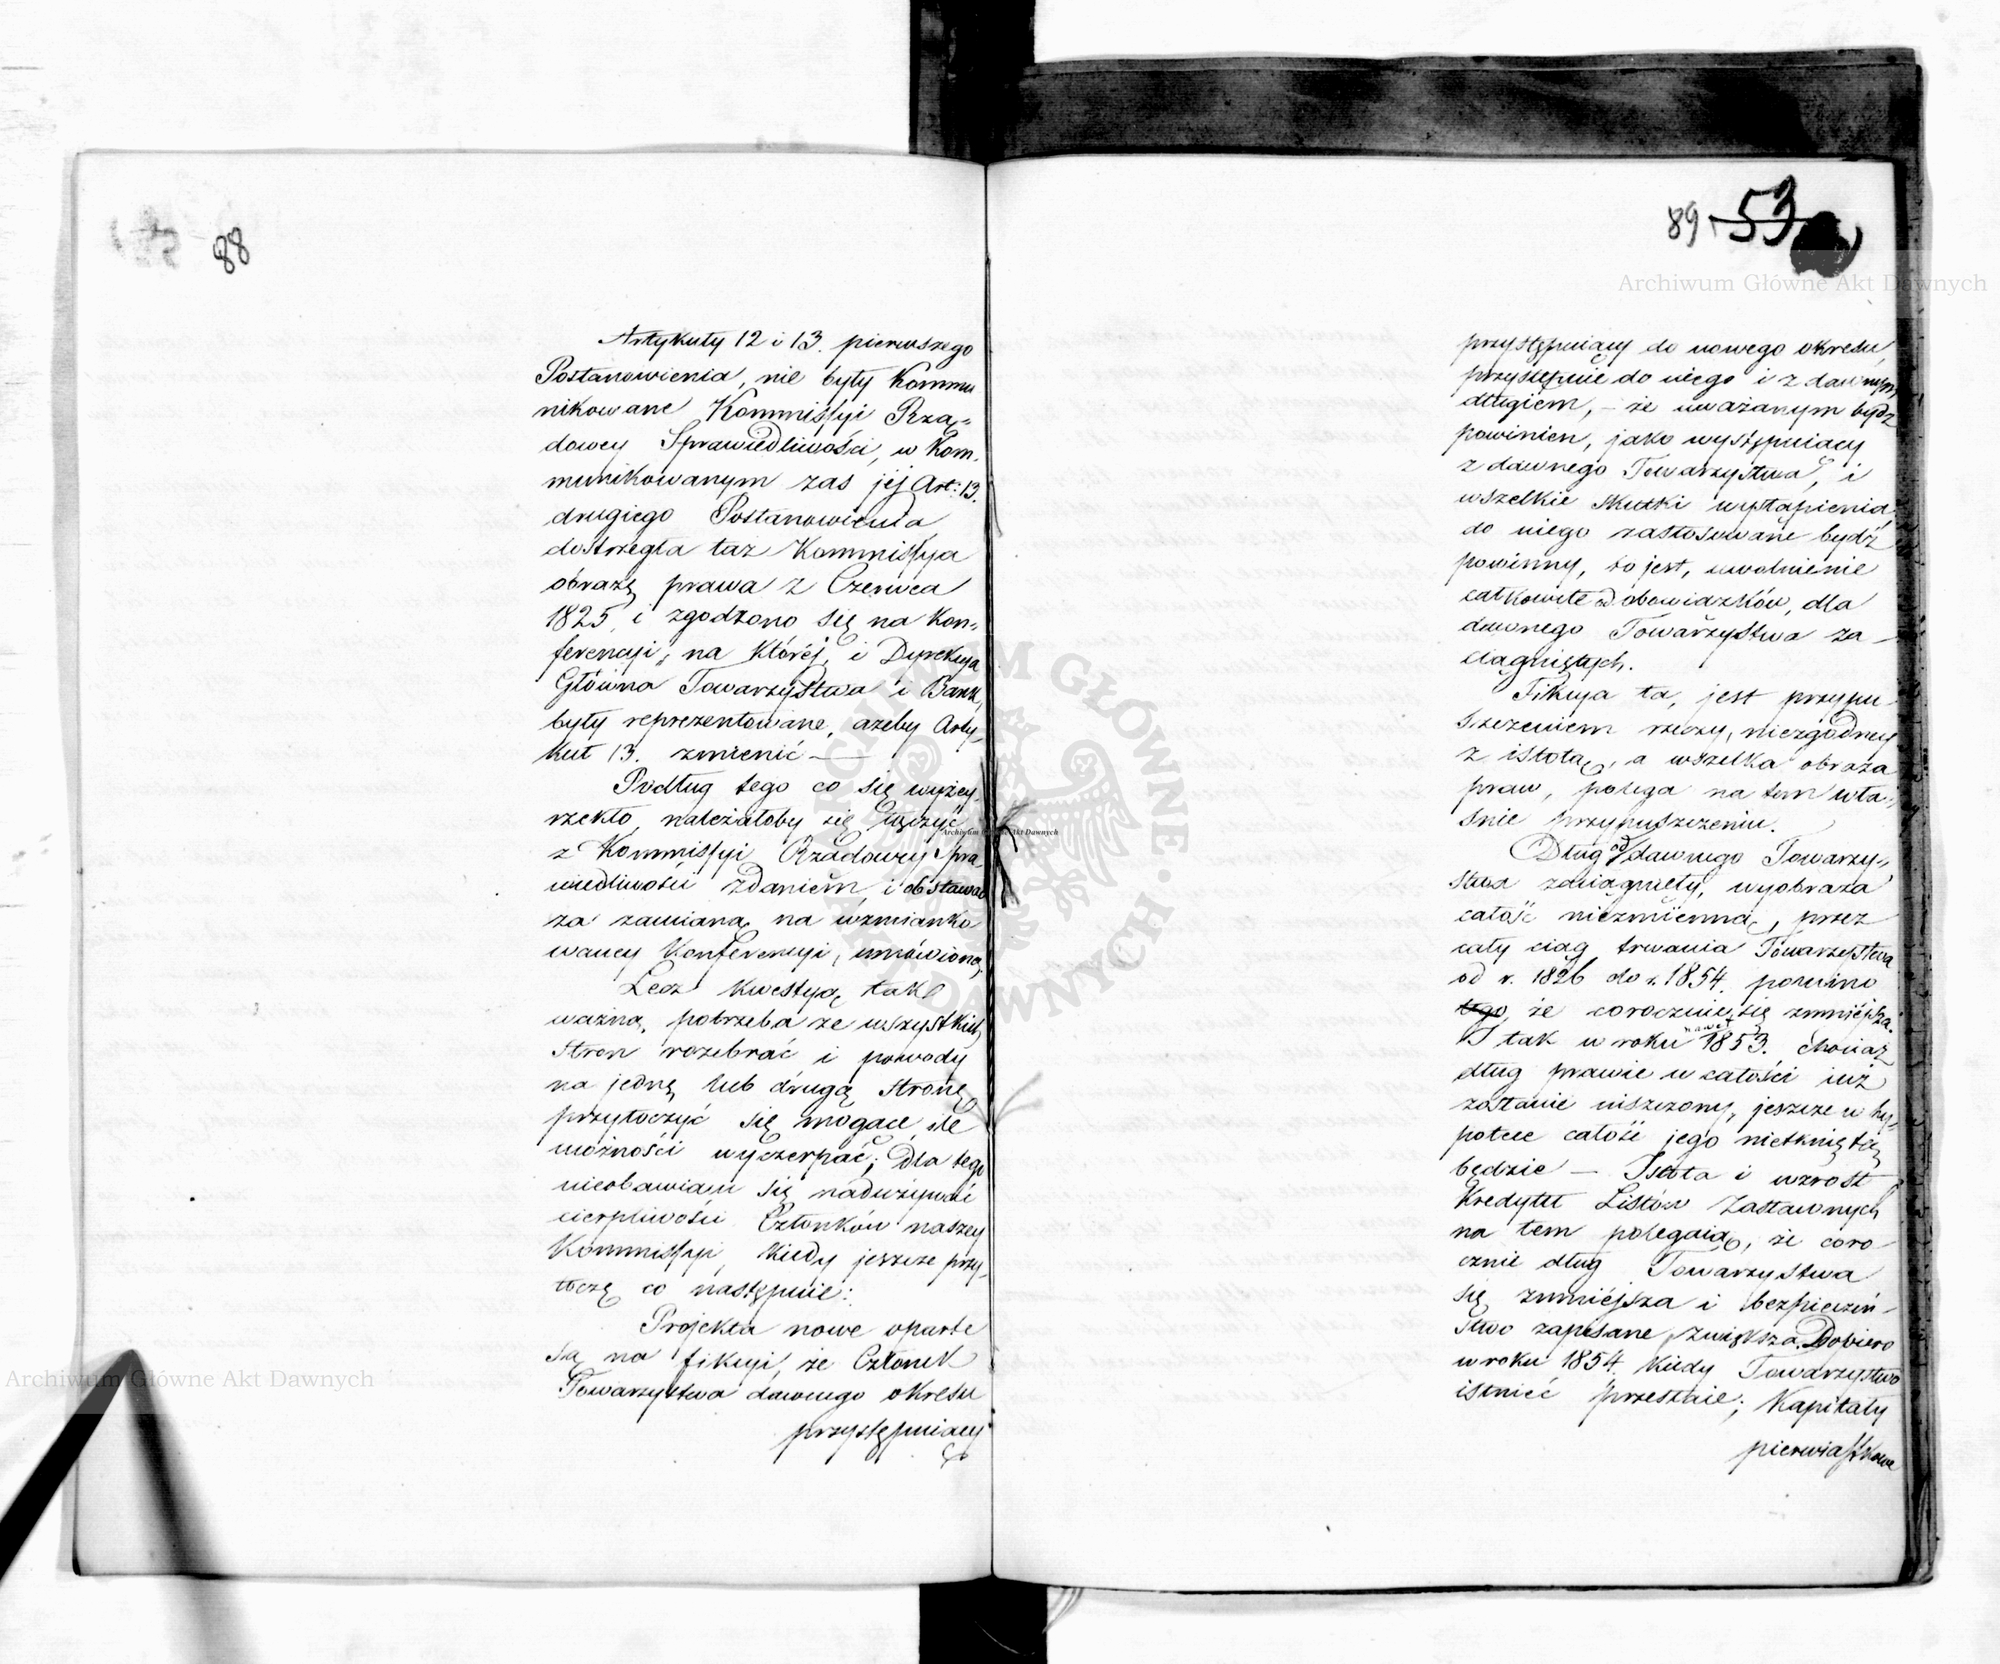 88
Artykuły 12 i 13. pierwszego
Postanowienia, nie były Kommu
nikowane Kommissyi Rzą„
dowey Sprawiedliwości, w Kom„
munikowanym zas jéj Art: 13.
drugiego Postanowienia
dostrzegła taż Kommissya
obrazę prawa z Czerwca
1825, i zgodzono się na Kon„
ferencyi, na któréj, i Dyrekcya
Główna Towarzystwa i Bank,
były reprezentowane, azeby Arty„
kuł 13. zmienić —
Podług tego co się wyżey
rzekło, należałoby się łączyć
z Kommissyi Rządowey Spra
wiedliwości zdaniem, i obstawać
za zamianą na wzmianko
waney Konferencyi, umówioną.
Lecz kwestyą tak
ważną, potrzeba ze wszystkich
stron rozebrać i powody
na jedną lub drugą stronę
przytoczyć się mogące, ile
możności wyczerpać; Dla tego
nieobawiam się nadużywać
cierpliwości Członków naszey
Kommissyi, kiedy jeszcze przy„
toczę co następuie:
Projekta nowe oparte
są na fikcyi, że Członek
Towarzystwa dawnego okresu
przystępuiący
89 53
przystępuiący do nowego okresu,
przystępuie do niego i z dawnym
długiem, – że uważanym bydź
powinien, jako występuiący
z dawnego Towarzystwa, i
wszelkie skutki wystąpienia
do niego zastosowane bydź
powinny, to jest, uwolnienie
całkowite od obowiązków, dla
dawnego Towarzystwa za –
ciągniętych.
Fikcya ta, jest przypu –
szczeniem rzeczy, niezgodney
z istotą, a wszelka obraza
praw, polega na tem wła„
śnie przypuszczeniu.
Dług od dawnego Towarzy„
stwa zaciągnięty, wyobraża
całość niezmienną, przez
cały ciąg trwania Towarzystwa
od r. 1826 do r. 1854. pomimo
tego, że corocznie się zmniéjsza.
I tak w roku nawet 1853. chociaż
dług prawie w całości już
zostanie uiszczony, jeszcze w hy„
potece całość jego nietkniętą
będzie — Istota i wzrost
Kredytu Listów Zastawnych
na tem polegaią, że coro –
cznie dług Towarzystwa
się zmniéjsza i bezpieczeń –
stwo zapisane, zwiększa. Dopiero
w roku 1854. kiedy Towarzystwo
istnieć przestaie; Kapitały
pierwiastkowe
Archiwum Główne Akt Dawnych
Archiwum Główne Akt Dawnych
Archiwum Główne Akt Dawnych
ARCHIWUM GŁÓWNE AKT DAWNYCH